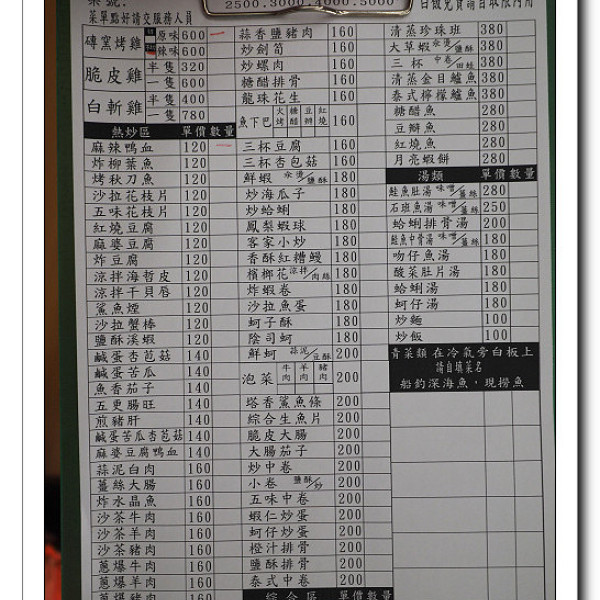 菜單點好請交服務人員
2500.3000.4000.5000
磚窯烤雞 原味 600
辣味 600
脆皮雞 半隻 320
一隻 600
白斬雞 半隻 400
一隻 780
熱炒區 單價 數量
麻辣鴨血 120
炸柳葉魚 120
烤秋刀魚 120
沙拉花枝片 120
五味花枝片 120
紅燒豆腐 120
麻婆豆腐 120
炸豆腐 120
涼拌海哲皮 120
涼拌干貝唇 120
鯊魚煙 120
沙拉蟹棒 120
鹽酥溪蝦 120
鹹蛋杏苞菇 140
鹹蛋苦瓜 140
魚香茄子 140
五更腸旺 140
煎豬肝 140
鹹蛋苦瓜杏苞菇 140
麻婆豆腐鴨血 140
蒜泥白肉 160
薑絲大腸 160
炸水晶魚 160
沙茶牛肉 160
沙茶羊肉 160
沙茶豬肉 160
蔥爆牛肉 160
蔥爆羊肉 160
蔥爆豬肉 160
蒜香鹽豬肉 160
炒劍筍 160
炒螺肉 160
糖醋排骨 160
龍珠花生 160
魚下巴 火烤 糖醋 豆瓣 紅燒 160
三杯豆腐 160
三杯杏包菇 160
鮮蝦 汆燙/鹽酥 180
炒海瓜子 180
炒蛤蜊 180
鳳梨蝦球 180
客家小炒 180
香酥紅糟鰻 180
檳榔花 涼拌/肉絲 180
炸蝦卷 180
沙拉魚蛋 180
蚵子酥 180
陰司蚵 180
鮮蚵 蒜泥/豆酥 200
泡菜 牛肉 羊肉 豬肉 200
塔香鯊魚條 200
綜合生魚片 200
脆皮大腸 200
大腸茄子 200
炒中卷 200
小卷 鹽酥/炒 200
五味中卷 200
蝦仁炒蛋 200
蚵仔炒蛋 200
橙汁排骨 200
鹽酥排骨 200
泰式中卷 200
綜合區 單價 數量
清蒸珍珠班 380
大草蝦 汆燙/鹽酥 380
三杯 中卷/田蛙 380
清蒸金目鱸魚 380
泰式檸檬鱸魚 380
糖醋魚 280
豆瓣魚 280
紅燒魚 280
月亮蝦餅 280
湯類 單價 數量
鮭魚肚湯 味噌/薑絲 280
石班魚湯 味噌/薑絲 250
蛤蜊排骨湯 200
鮭魚中骨湯 味噌/薑絲 180
吻仔魚湯 180
酸菜肚片湯 180
蛤蜊湯 180
蚵仔湯 180
炒麵 100
炒飯 100
青菜類 在冷氣旁白板上
請自填菜名
船釣深海魚，現撈魚